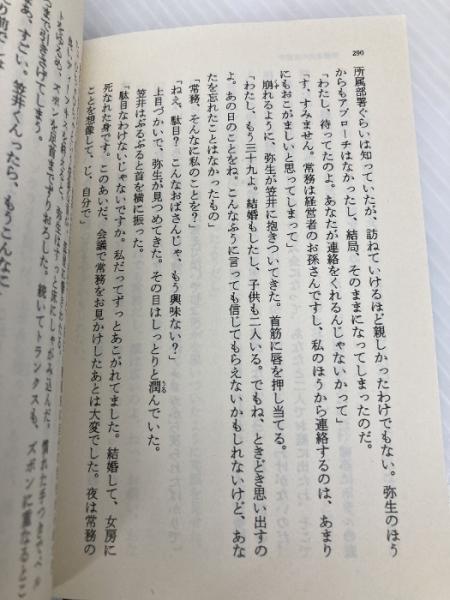 290
所属部署ぐらいは知っていたが、訪ねていけるほど親しかったわけでもない。弥生のほう
からもアプローチはなかったし、結局、そのままになってしまったのだ。
「わたし、待ってたのよ。あなたが連絡をくれるんじゃないかって」
「す、すみません。常務は経営者のお孫さんですし、私のほうから連絡するのは、あまり
にもおこがましいと思ってしまって」
崩れるように、弥生が笠井に抱きついてきた。首筋に唇を押し当てる。
「わたし、もう三十九よ。結婚もしたし、子供も二人いる。でもね、ときどき思い出すの
よ。あの日のことをね。こんなふうに言っても信じてもらえないかもしれないけど、あな
たを忘れたことはなかったもの」
「常務、そんなに私のことを?」
「ねえ、駄目? こんなおばさんじゃ、もう興味ない?」
上目づかいで、弥生が見つめてきた。その目はしっとりと潤んでいた。
笠井はぶるぶると首を横に振った。
「駄目なわけないじゃないですか。私だってずっとあこがれてました。結婚して、女房に
死なれた身です。このあいだ、会議で常務をお見かけしたあとは大変でした。夜は常務の
ことを想像して、じ、自分で」
ズボンを足首までずりおろした。続いてトランクスも、
つまで引きさげてしまう。
まあ、すごい。笠井くんったら、もうこんなに